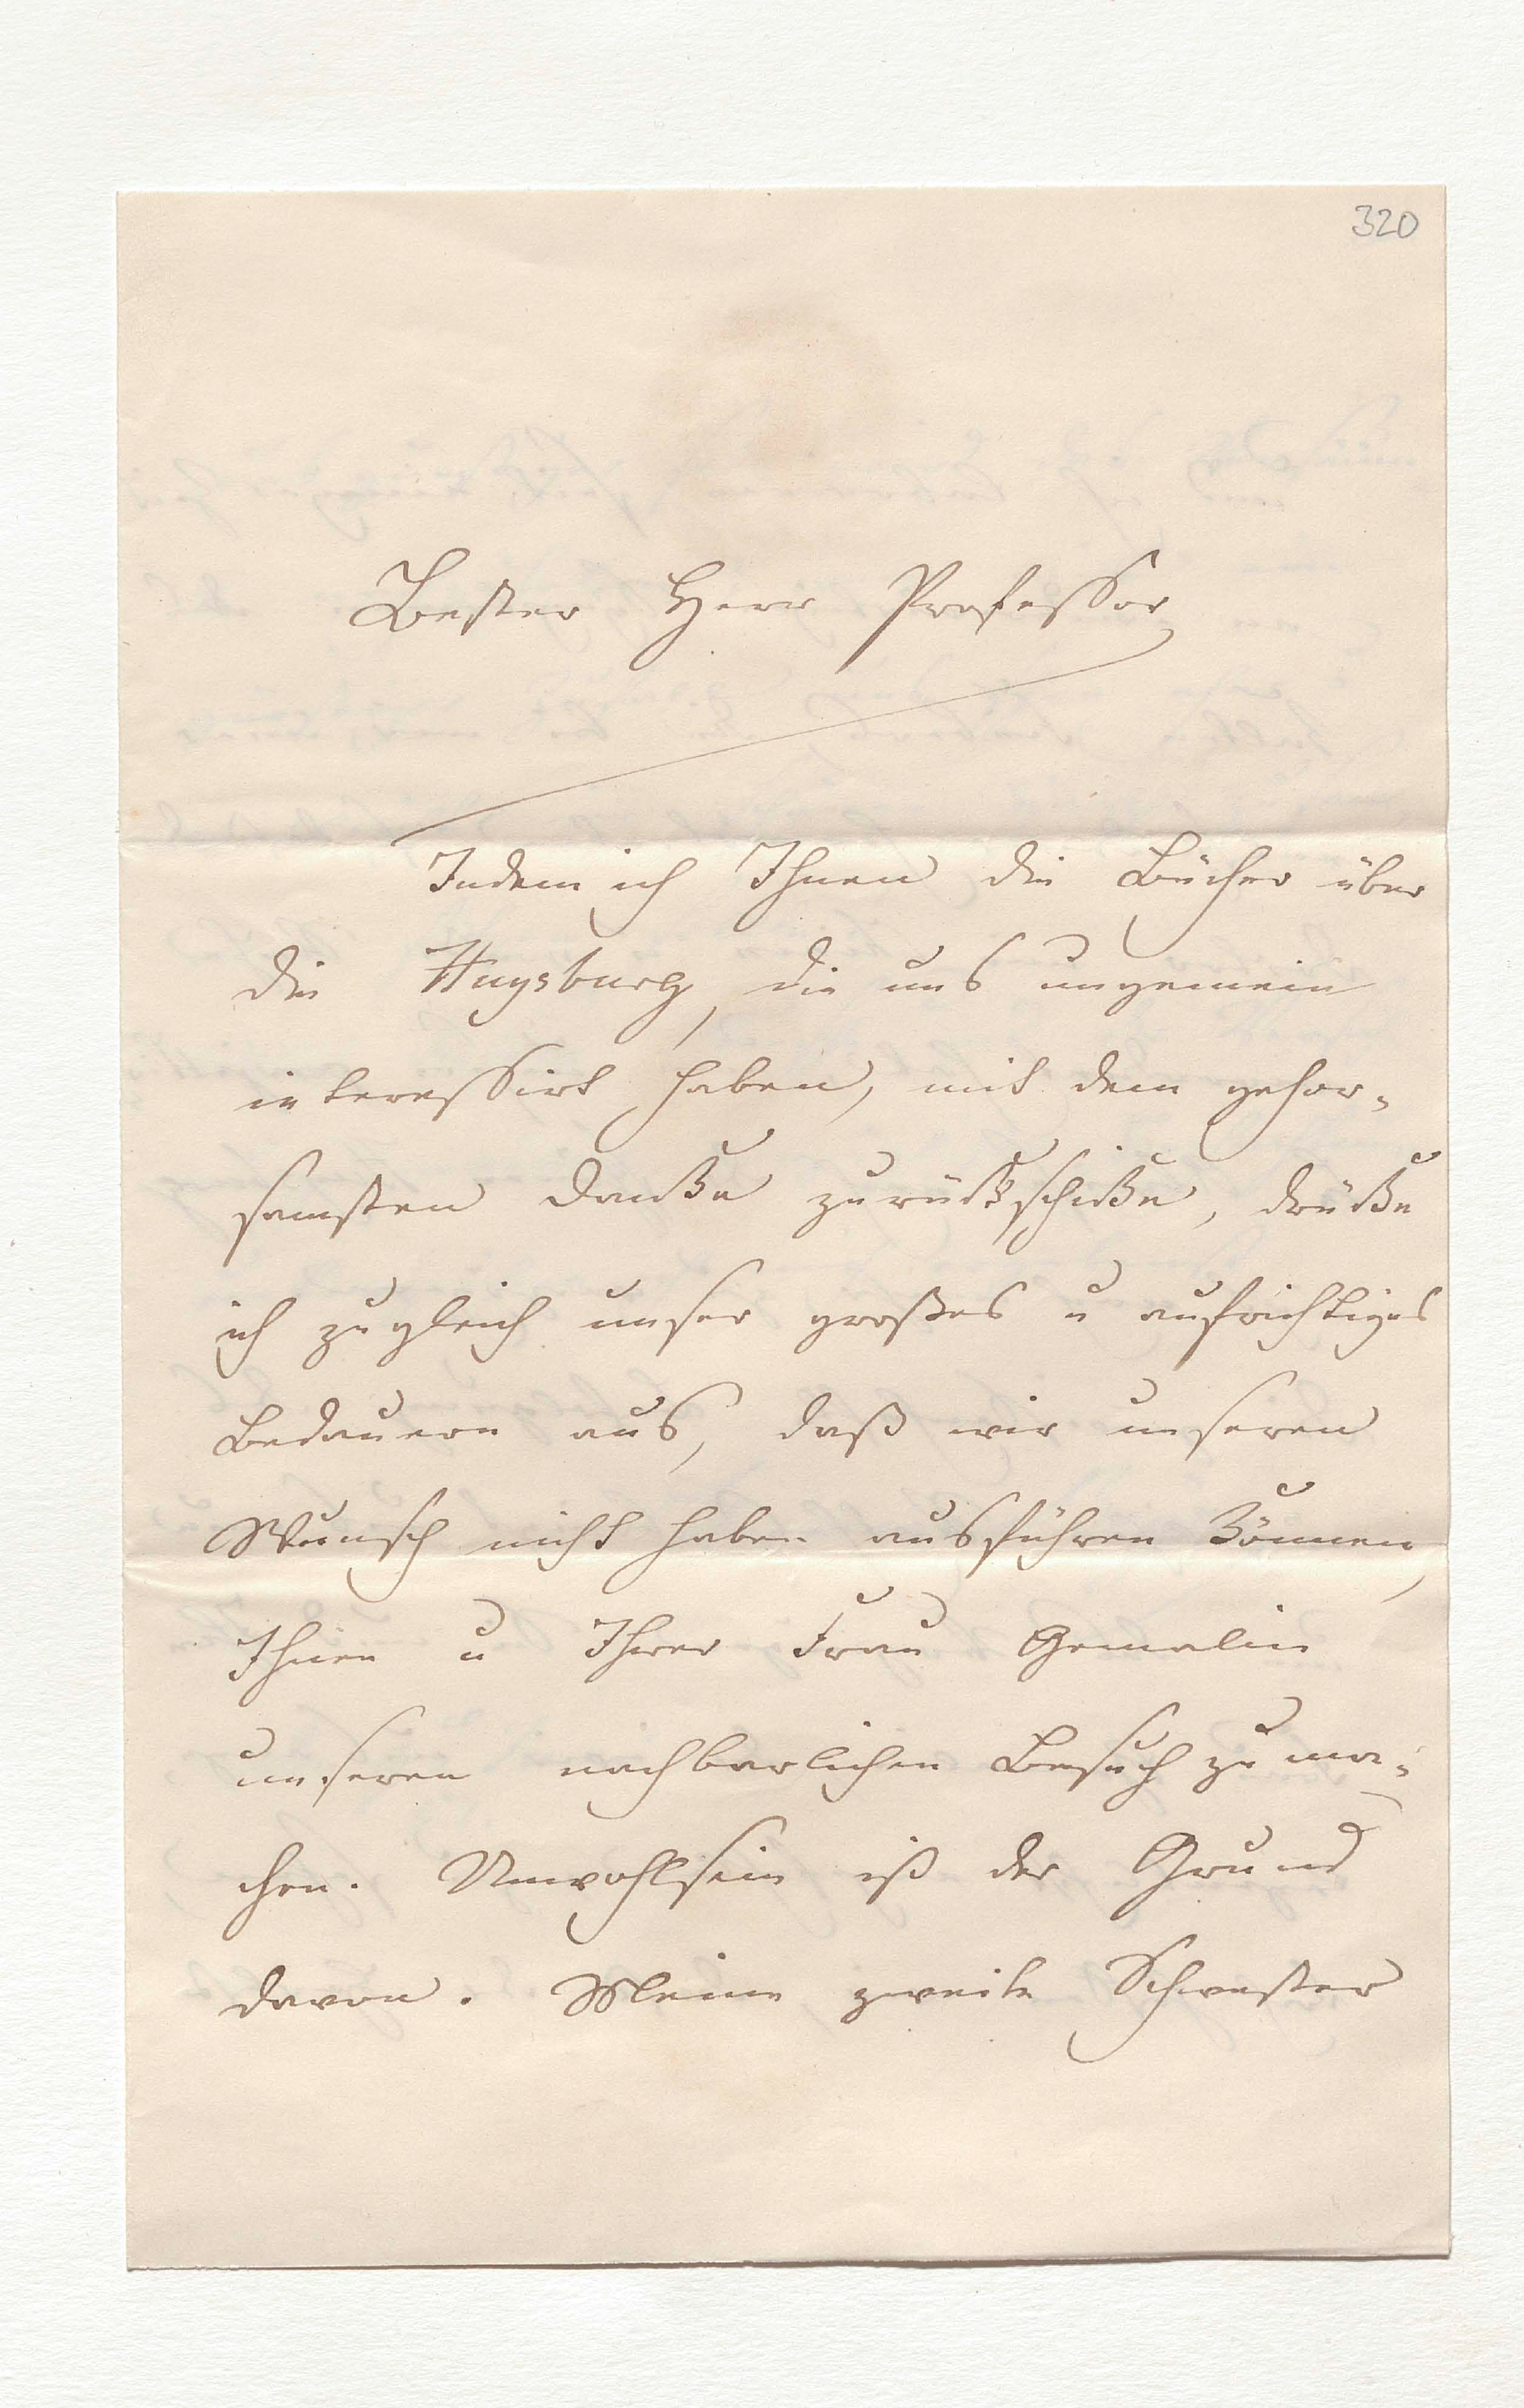 320
Bester Herr Professor
Indem ich Ihnen die Bücher über
die Huysburg, die uns ungemein
interessirt haben, mit dem gehor-
samsten Danke zurükschike, drüke
ich zugleich unser großes u aufrichtiges
Bedauern aus, daß wir unseren
Wunsch nicht haben ausführen können,
Ihnen u Ihrer Frau Gemalin
unseren nachbarlichen Besuch zu ma-
chen. Unwohlsein ist der Grund
davon. Meine zweite Schwester